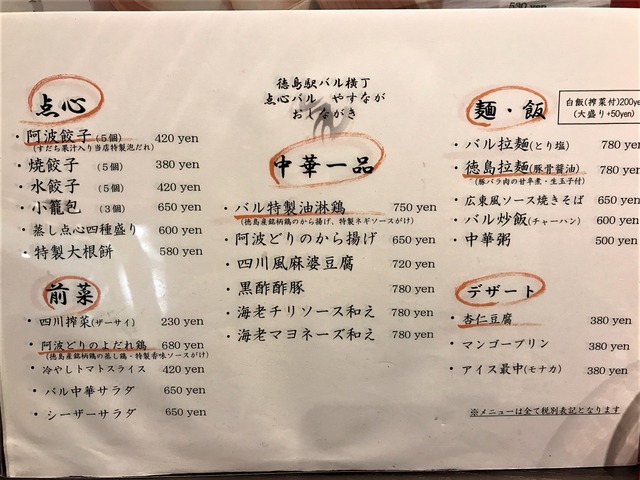 530 yen
徳島駅バル横丁
点心バル やすなが
おしながき
点心
・阿波餃子(5個) 420 yen
(すだち果汁入り当店特製泡だれ)
・焼餃子 (5個) 380 yen
・水餃子 (5個) 420 yen
・小籠包 (3個) 650 yen
・蒸し点心四種盛り 600 yen
・特製大根餅 580 yen
前菜
・四川搾菜(ザーサイ) 230 yen
・阿波どりのよだれ鶏 680 yen
(徳島産銘柄鶏の蒸し鶏・特製香味ソースがけ)
・冷やしトマトスライス 420 yen
・バル中華サラダ 650 yen
・シーザーサラダ 650 yen
中華一品
・バル特製油淋鶏 750 yen
(徳島産銘柄鶏のから揚げ、特製ネギソースがけ)
・阿波どりのから揚げ 650 yen
・四川風麻婆豆腐 720 yen
・黒酢酢豚 780 yen
・海老チリソース和え 780 yen
・海老マヨネーズ和え 780 yen
麺・飯
白飯(搾菜付)200ye
(大盛り+50yen)
・バル拉麺(とり塩) 780 yen
・徳島拉麺(豚骨醤油) 780 yen
(豚バラ肉の甘辛煮・生玉子付)
・広東風ソース焼きそば 650 yen
・バル炒飯(チャーハン) 600 yen
・中華粥 500 yen
デザート
・杏仁豆腐 380 yen
・マンゴープリン 380 yen
・アイス最中(モナカ) 380 yen
※メニューは全て税別表記となります